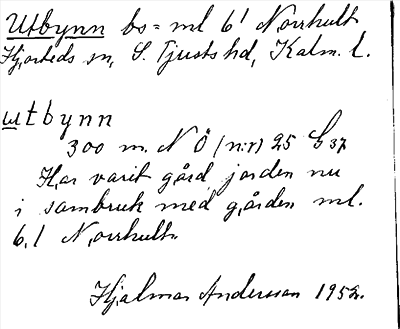 Utbynn bs= ml 6¹ Norrhult
Hjorteds sn, S. Tjusts hd, Kalm. l.
utbynn
300 m. N Ö (n:r) 25 C 37
Har varit gård jorden nu
i sambruk med gården ml.
6,1 Norrhult.
Hjalmar Andersson 1952.